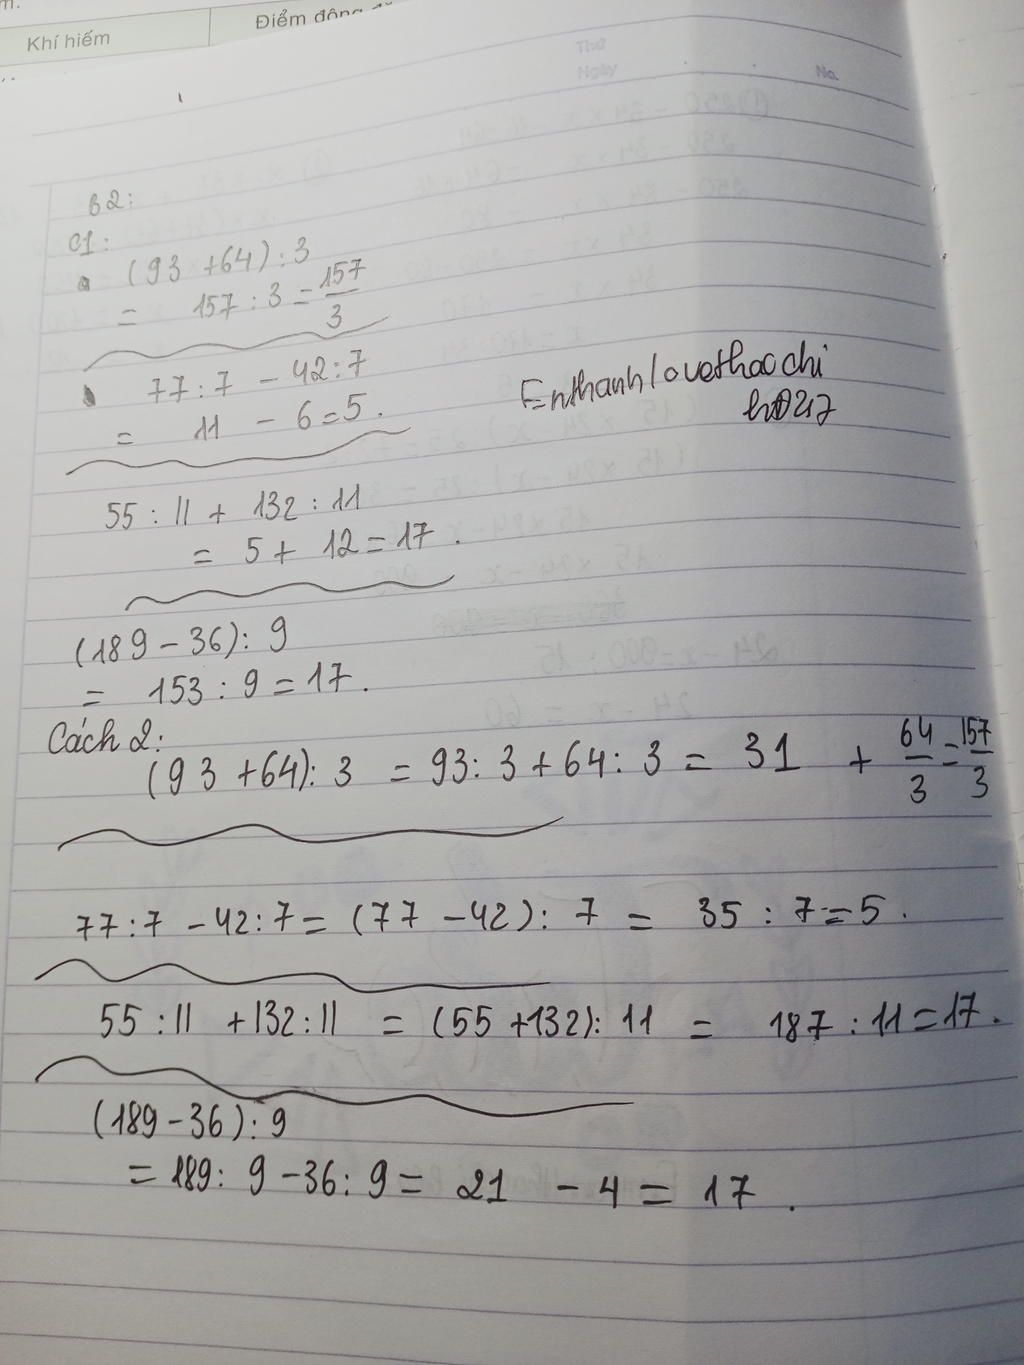 Khí hiếm
Điểm đông đ
Thứ
Ngày
No.
B2:
C1:
(93 + 64) : 3
= 157 : 3 = 157/3
77 : 7 - 42 : 7
= 11 - 6 = 5.
Enthanhlovethaochi
55 : 11 + 132 : 11
= 5 + 12 = 17.
(189 - 36) : 9
= 153 : 9 = 17.
Cách 2:
(93 + 64) : 3 = 93 : 3 + 64 : 3 = 31 + 64/3 = 157/3
77 : 7 - 42 : 7 = (77 - 42) : 7 = 35 : 7 = 5.
55 : 11 + 132 : 11 = (55 + 132) : 11 = 187 : 11 = 17.
(189 - 36) : 9
= 189 : 9 - 36 : 9 = 21 - 4 = 17.